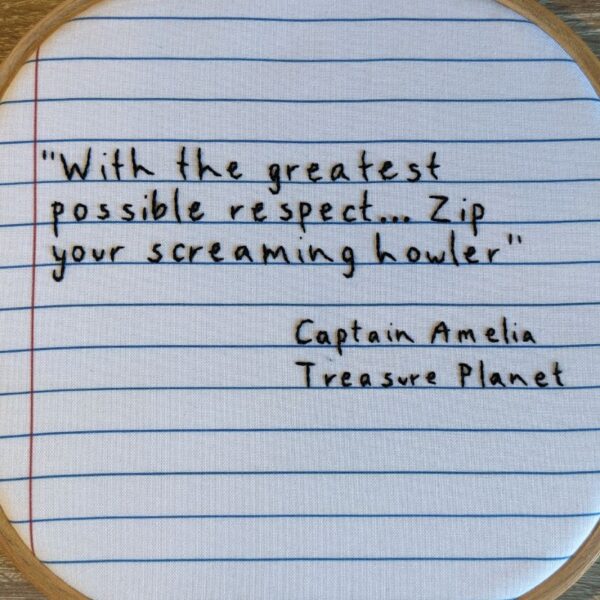 "With the greatest
possible respect... Zip
your screaming howler"
Captain Amelia
Treasure Planet